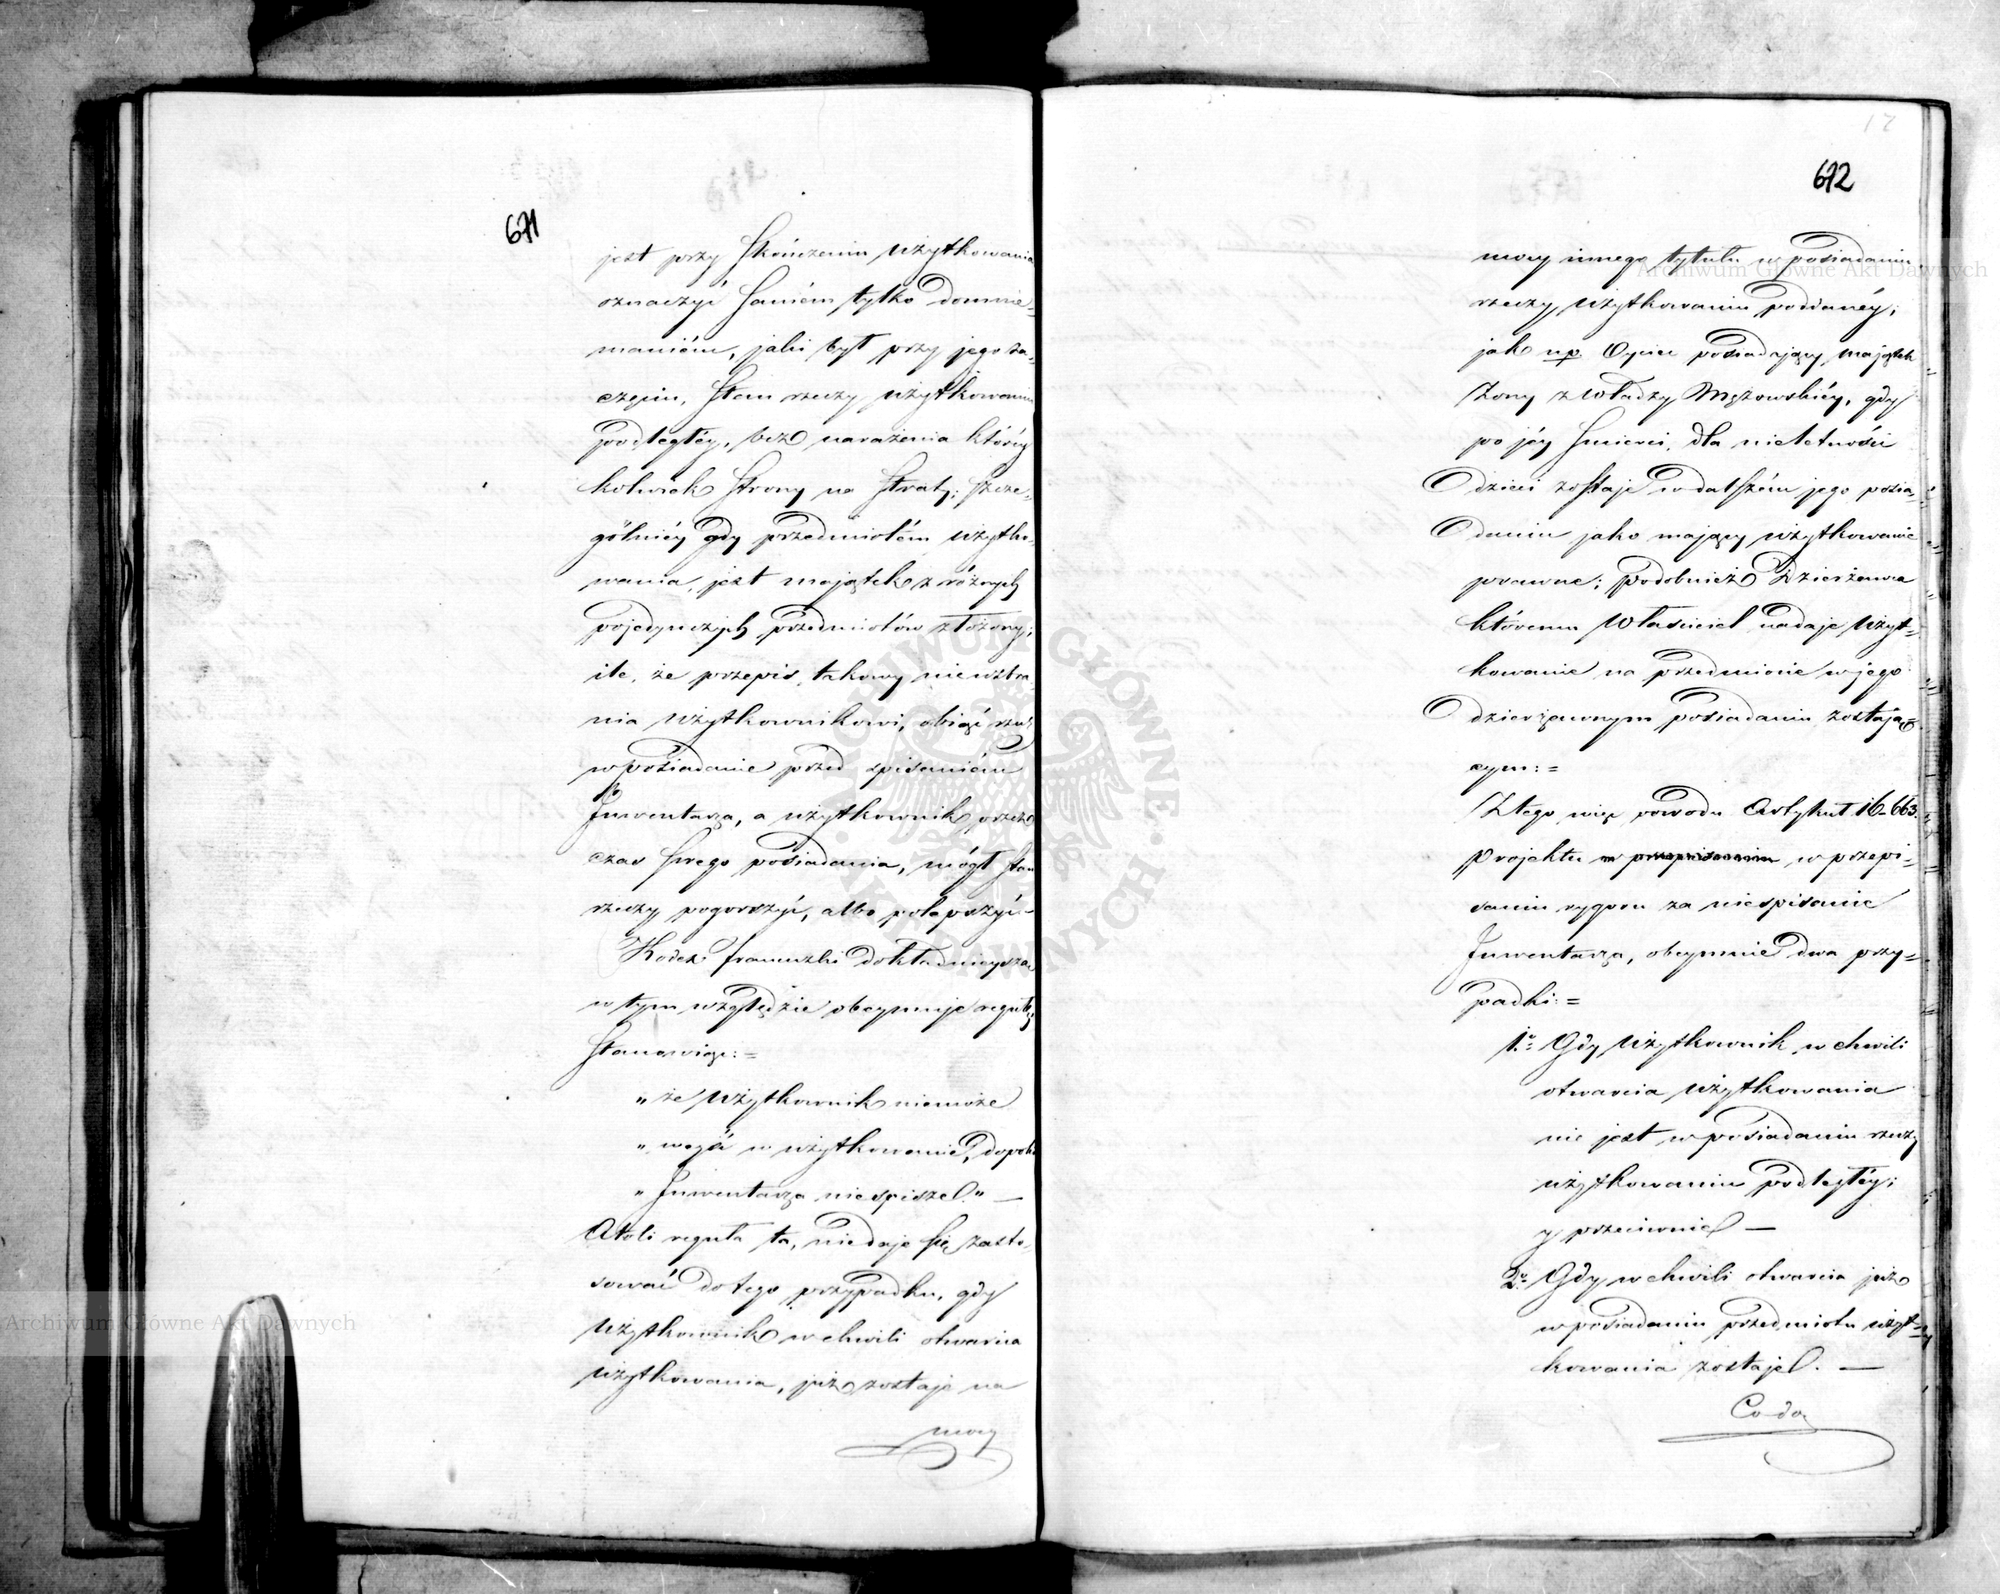 671
jest przy skończeniu użytkowania
oznaczyć samém tylko domnie=
maniém, jaki był przy jego za=
częciu, stan rzeczy użytkowaniu
podległéy, bez narażenia któréy
kolwiek strony na straty; szcze=
gólniéy gdy przedmiotém użytko=
wania, jest majątek z różnych
pojedynczych przedmiotów złożony;
ile, że przepis takowy niewzbra=
nia użytkownikowi, obiąć rzecz
w posiadanie przed spisaniém
Inwentarza, a użytkownik przez
czas swego posiadania, mógł stan
rzeczy pogorszyć, albo polepszyć.–
Kodex francuzki dokładnieyszą
w tym względzie obeymuje regułę
stanowiąc:=
„ że użytkownik niemoże
„ wejść w użytkowanie, dopóki
„ Inwentarza niespisze." —
Atoli reguła ta, niedaje się zasto=
sować do tego przypadku, gdy
użytkownik w chwili otwarcia
użytkowania, już zostaje na
mocy
12
672
mocy innego tytułu w posiadaniu
rzeczy użytkowaniu poddanéy;
jak np. Oyciec posiadający majątek
Żony z władzy Mężowskiéy, gdy
po jéy śmierci, dla nieletności
dzieci zostaje w dalszém jego posia=
daniu jako mający użytkowanie
prawne; podobnież Dzierżawca
któremu Właściciel nadaje użyt=
kowanie na przedmiocie w jego
dzierżawnym posiadaniu zostają=
cym:=
Z tego więc powodu Artykuł 16–663.
Projektu w przepisaniu w przepi=
saniu rygoru za niespisanie
Inwentarza, obeymuie dwa przy=
padki:=
1.o Gdy użytkownik w chwili
otwarcia użytkowania
nie jest w posiadaniu rzeczy
użytkowaniu podległéy;
y przeciwnie —
2.o Gdy w chwili otwarcia już
w posiadaniu przedmiotu użyt=
kowania zostaje. —
Co do
Archiwum Główne Akt Dawnych
Archiwum Główne Akt Dawnych
ARCHIWUM GŁÓWNE AKT DAWNYCH